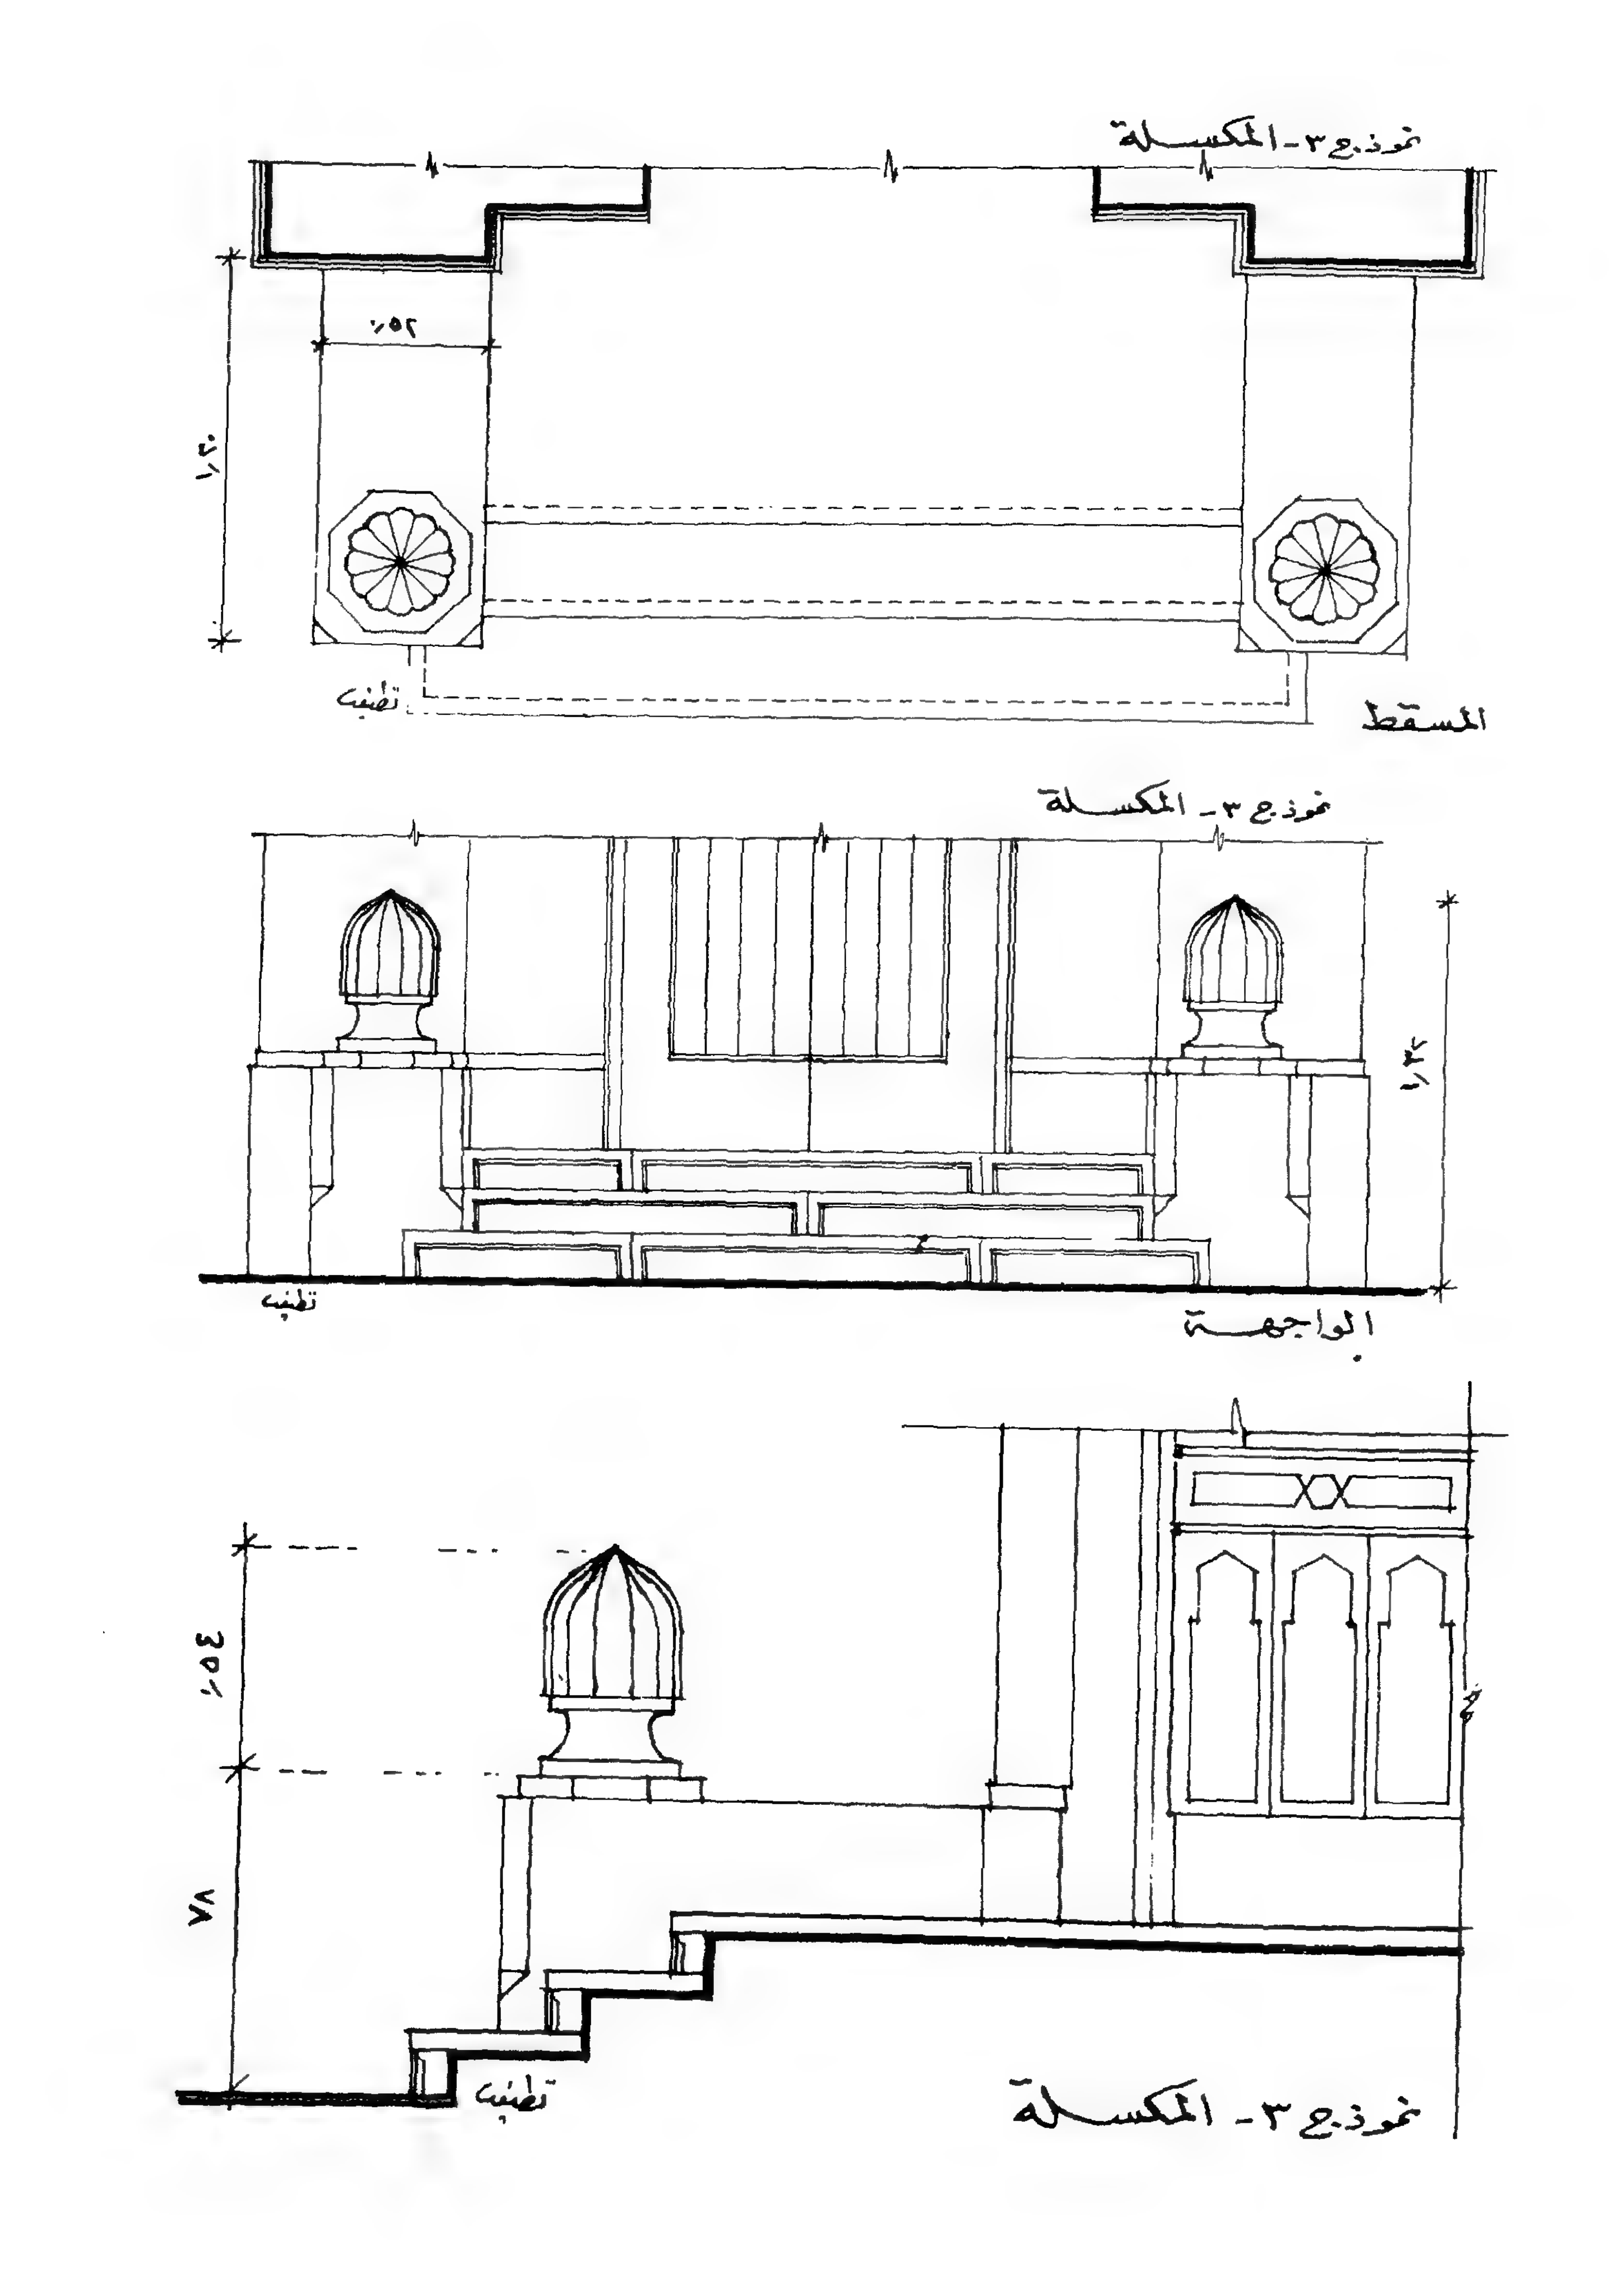 نموذج ٣- المكسلة
٠٫٥٢
١٫٢٠
تطنيف
المسقط
نموذج ٣- المكسلة
١٫٣٢
تطنيف
الواجهة
٠٫٥٤
٧٨
تطنيف
نموذج ٣- المكسلة